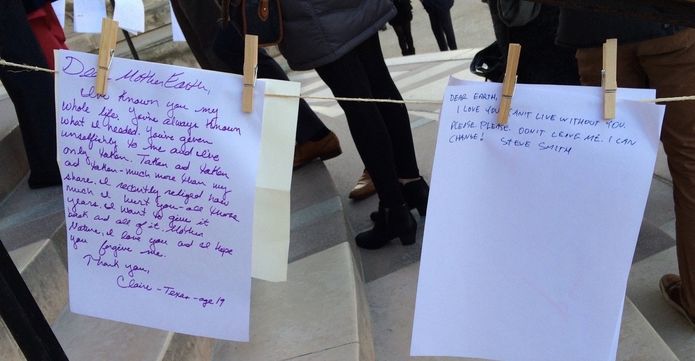 Dear Mother Earth,
I've known you my
whole life. You've always known
what I needed. You've given
unselfishly to me and I've
only taken. Taken and taken
and taken - much more than my
share. I recently realized how
much I hurt you - all those
years. I want to give it
back and all of it. Mother
Nature, I love you and I hope
you forgive me.
Thank you,
Claire - Texas - age 19
DEAR EARTH,
I LOVE YOU. CAN'T LIVE WITHOUT YOU.
PLEASE. PLEASE. DON'T LEAVE ME. I CAN
CHANGE! STEVE SMITH